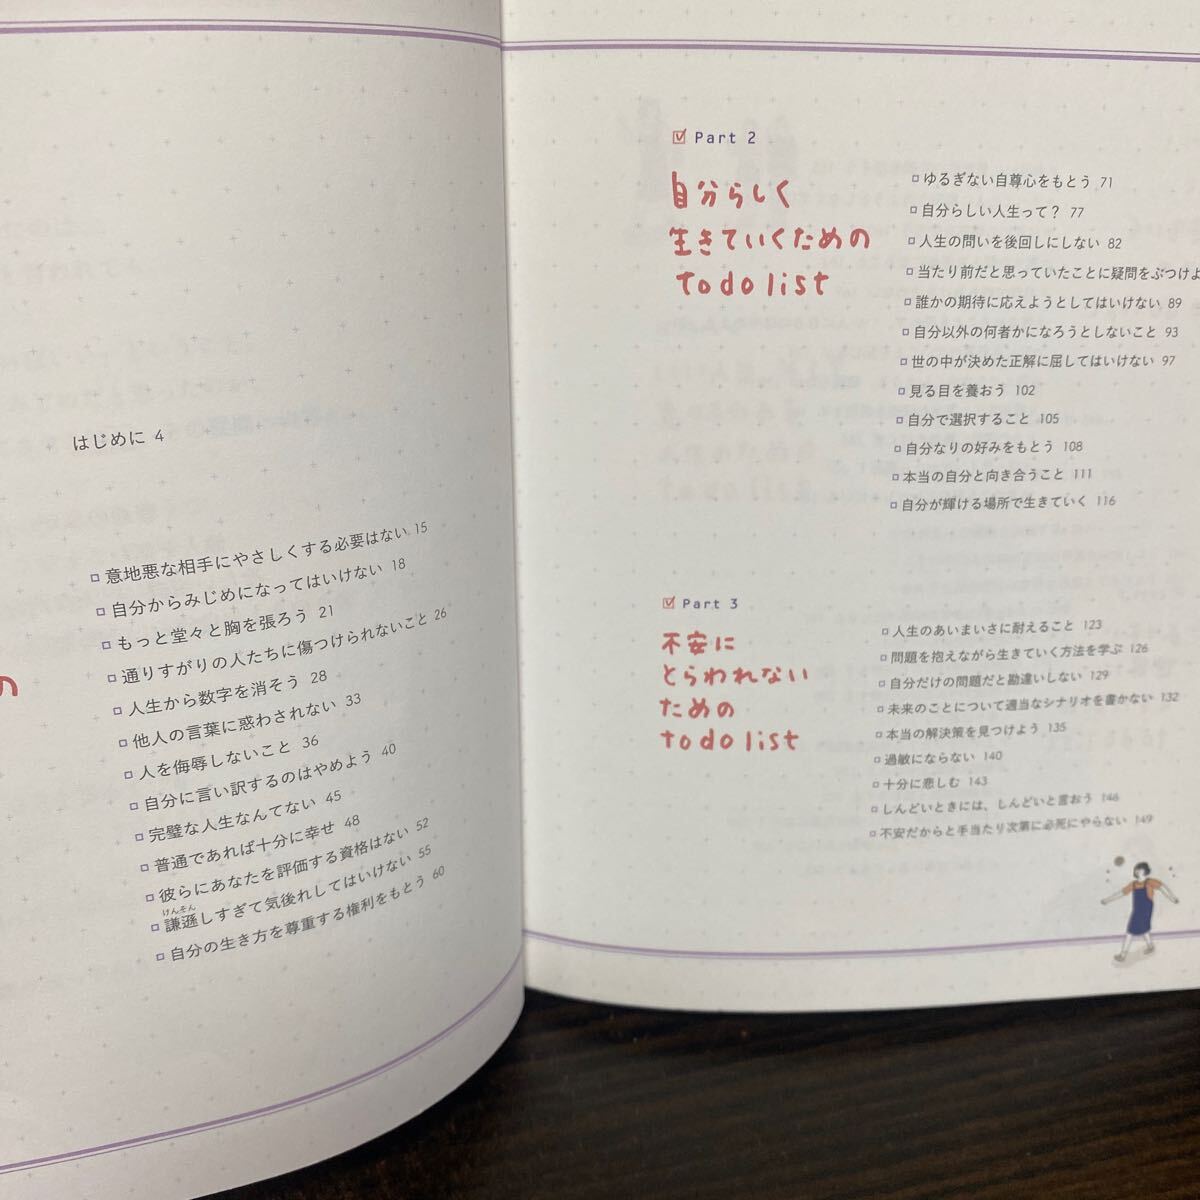 はじめに 4
の
意地悪な相手にやさしくする必要はない 15
自分からみじめになってはいけない 18
もっと堂々と胸を張ろう 21
通りすがりの人たちに傷つけられないこと 26
人生から数字を消そう 28
他人の言葉に惑わされない 33
人を侮辱しないこと 36
自分に言い訳するのはやめよう 40
完璧な人生なんてない 45
普通であれば十分に幸せ 48
彼らにあなたを評価する資格はない 52
けんそん
謙遜しすぎて気後れしてはいけない 55
自分の生き方を尊重する権利をもとう 60
Part 2
自分らしく
生きていくための
todo list
ゆるぎない自尊心をもとう 71
自分らしい人生って? 77
人生の問いを後回しにしない 82
当たり前だと思っていたことに疑問をぶつけよ
誰かの期待に応えようとしてはいけない 89
自分以外の何者かになろうとしないこと 93
世の中が決めた正解に屈してはいけない 97
見る目を養おう 102
自分で選択すること 105
自分なりの好みをもとう 108
本当の自分と向き合うこと 111
自分が輝ける場所で生きていく 116
Part 3
不安に
とらわれない
ための
todo list
人生のあいまいさに耐えること 123
問題を抱えながら生きていく方法を学ぶ 126
自分だけの問題だと勘違いしない 129
未来のことについて適当なシナリオを書かない 132
本当の解決策を見つけよう 135
過敏にならない 140
十分に悲しむ 143
しんどいときには、しんどいと言おう 146
不安だからと手当たり次第に必死にやらない 149